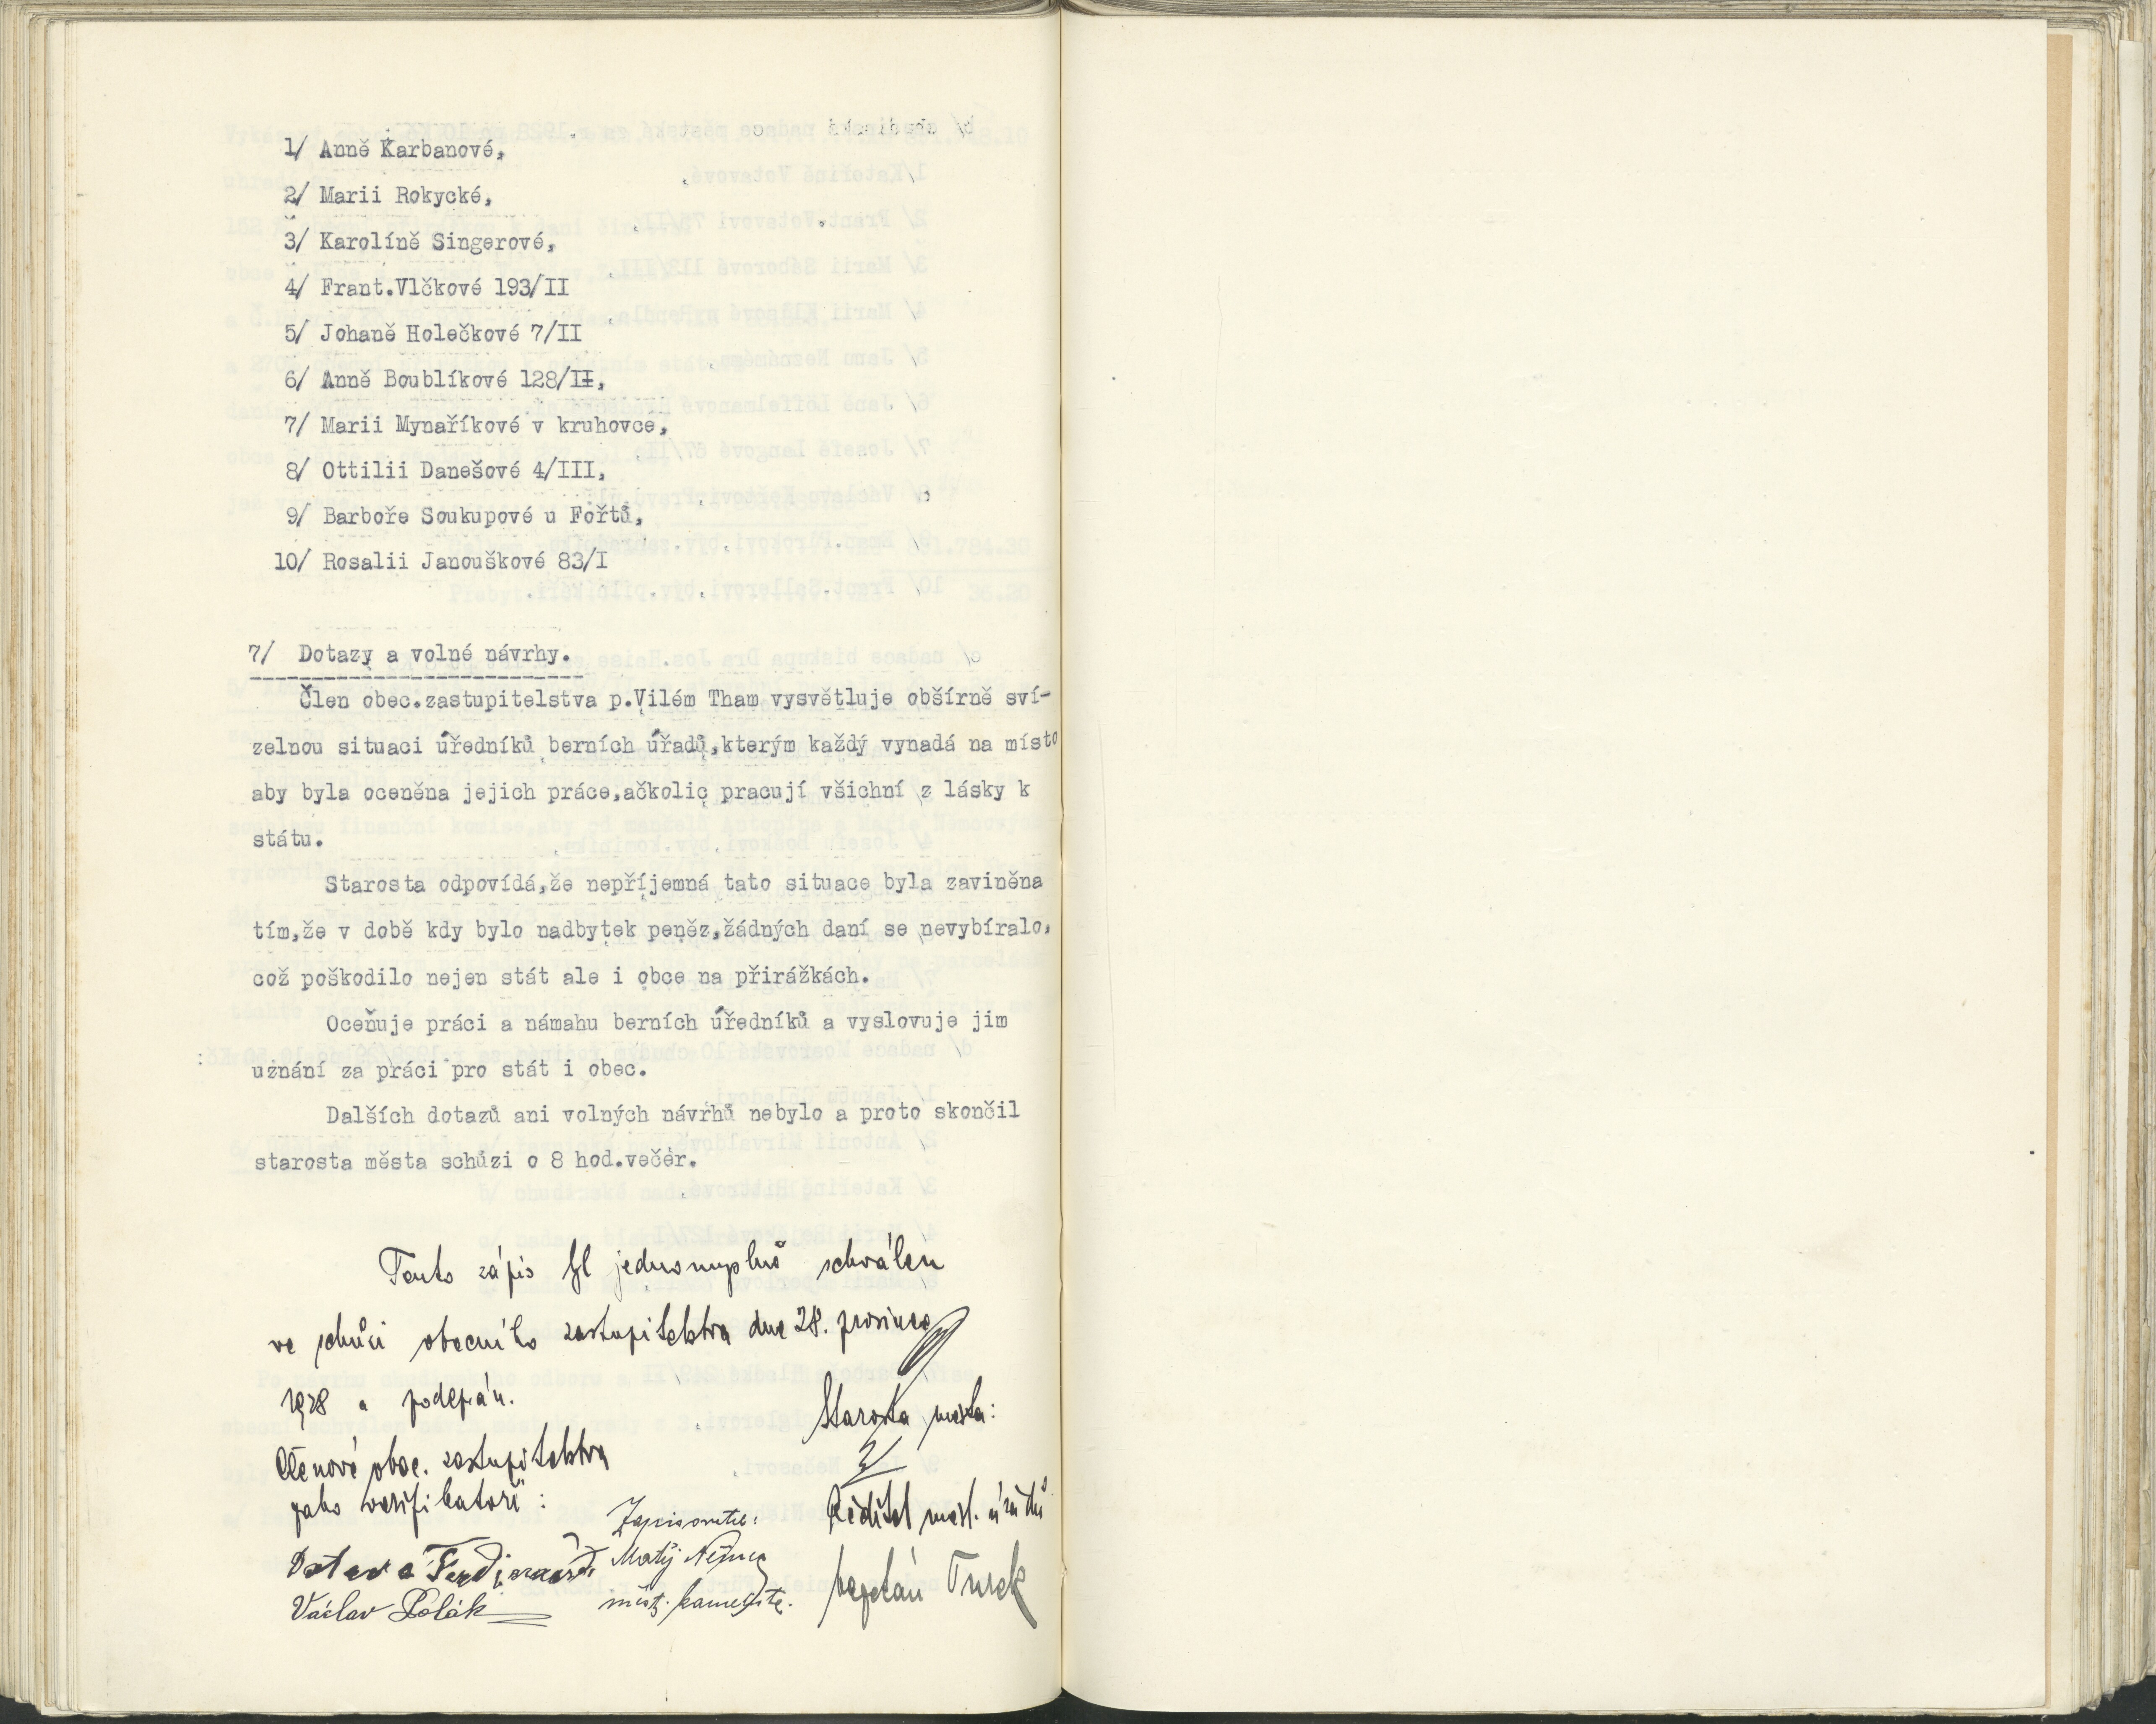 1/ Anně Karbanové,
2/ Marii Rokycké,
3/ Karolíně Singerové,
4/ Frant.Vlčkové 193/II
5/ Johaně Holečkové 7/II
6/ Anně Boublíkové 128/II,
7/ Marii Mynaříkové v kruhovce,
8/ Ottilii Danešové 4/III,
9/ Barboře Soukupové u Fořtů,
10/ Rosalii Janouškové 83/I
7/ Dotazy a volné návrhy.
Člen obec.zastupitelstva p.Vilém Tham vysvětluje obšírně sví-
zelnou situaci úředníků berních úřadů,kterým každý vynadá na místo
aby byla oceněna jejich práce,ačkolic pracují všichní z lásky k
státu.
Starosta odpovídá,že nepříjemná tato situace byla zaviněna
tím,že v době kdy bylo nadbytek peněz,žádných daní se nevybíralo,
což poškodilo nejen stát ale i obce na přirážkách.
Oceňuje práci a námahu berních úředníků a vyslovuje jim
uznání za práci pro stát i obec.
Dalších dotazů ani volných návrhů nebylo a proto skončil
starosta města schůzi o 8 hod.večer.
Tento zápis byl jednomyslně schválen
ve schůzi obecního zastupitelstva dne 28. prosince
1928 a podepsán.
Starosta města:
Členové obec. zastupitelstva
jako verifikatoři:
Zapisovatel:
Ředitel měst. úřadů
Votava Ferdinand
Matěj Němec
Václav Polák
měst.
Turek